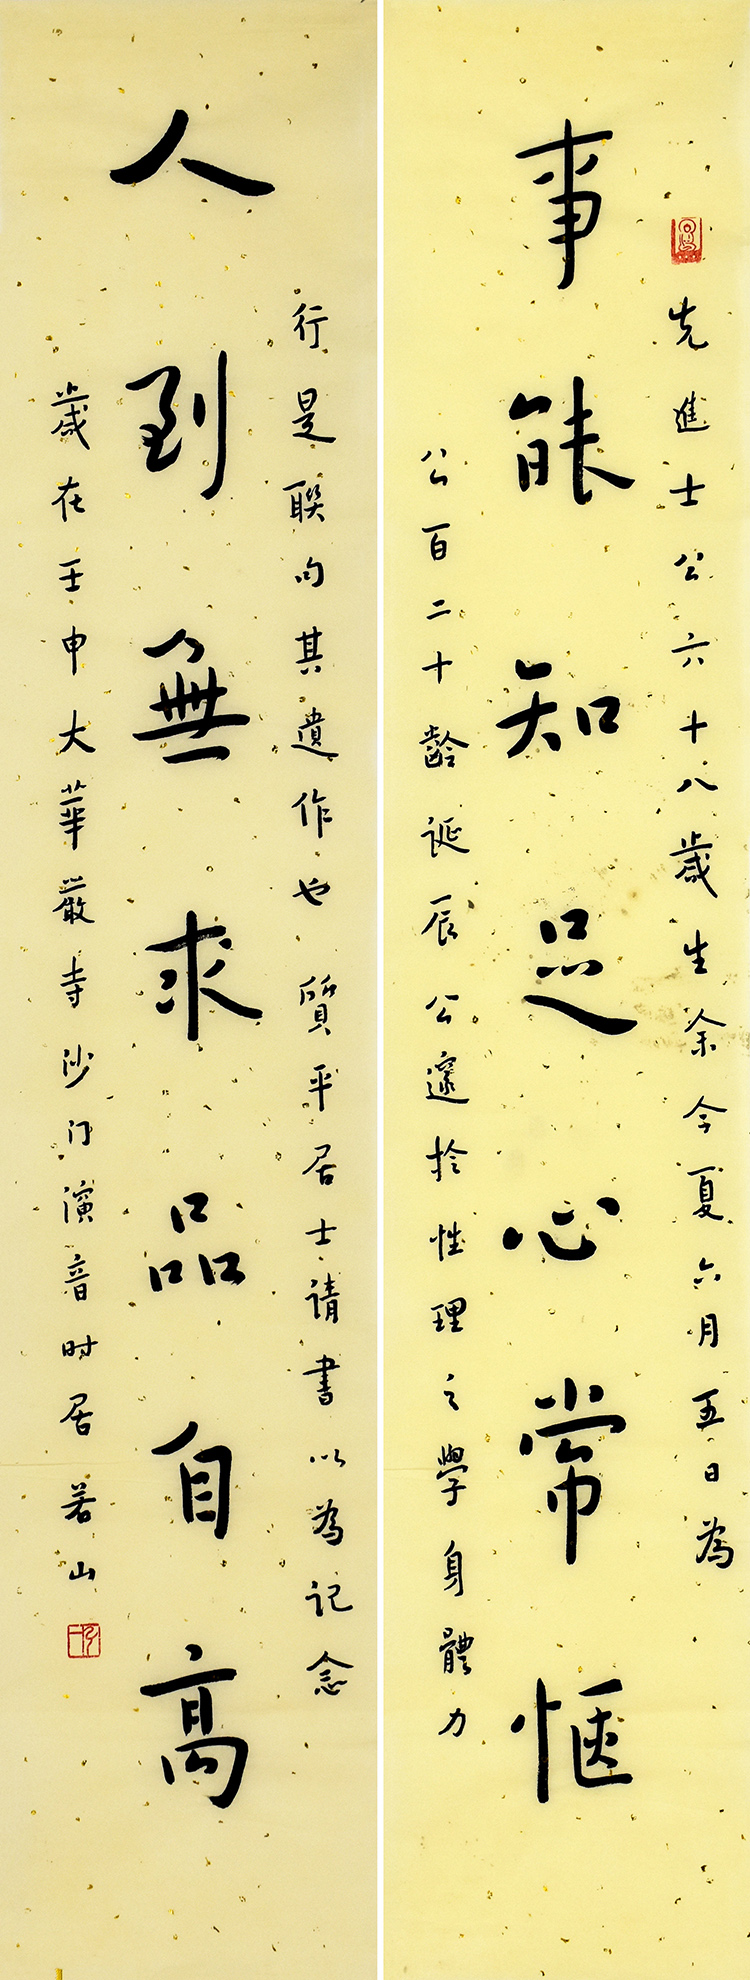 事能知足心常惬
先進士公六十八歲生余今夏六月五日為
公百二十齡誕辰公邃於性理之學身體力
人到無求品自高
行是聯句其遺作也 質平居士請書以為記念
歲在壬申大華嚴寺沙门演音时居若山